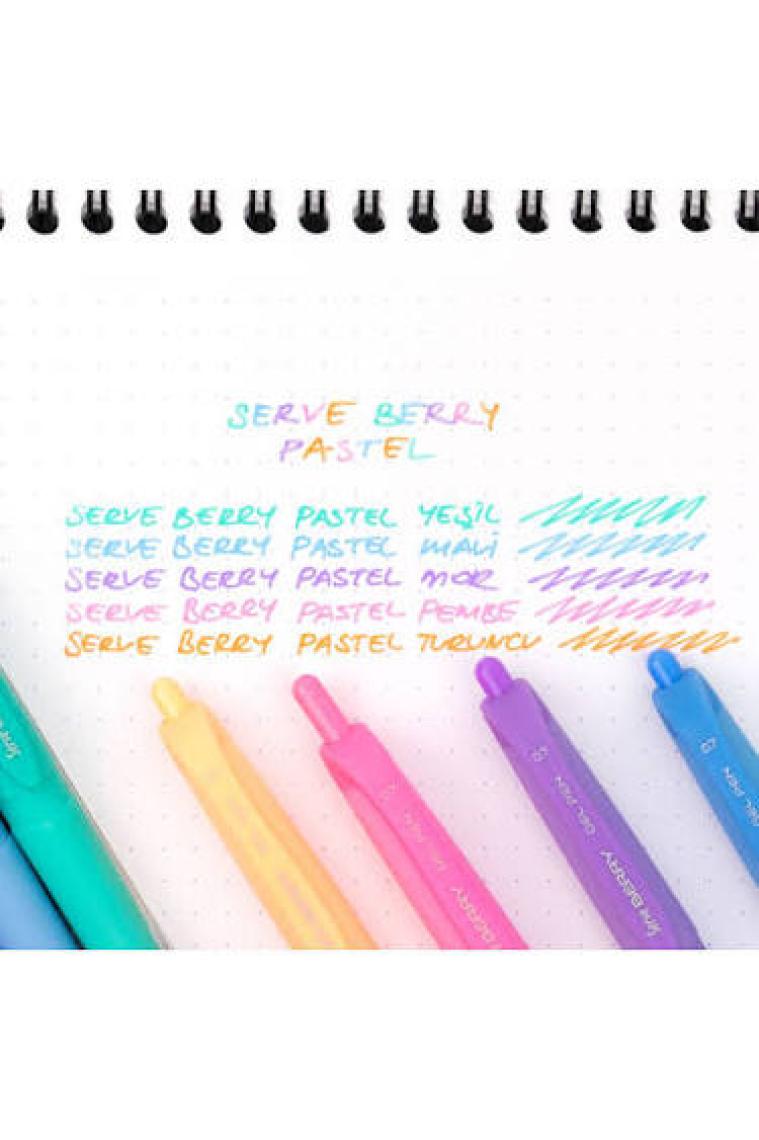 SERVE BERRY
PASTEL
SERVE BERRY PASTEL YEŞİL
SERVE BERRY PASTEL MAVİ
SERVE BERRY PASTEL MOR
SERVE BERRY PASTEL PEMBE
SERVE BERRY PASTEL TURUNCU
BERRY GEL PEN
BERRY GEL PEN
GEL PEN